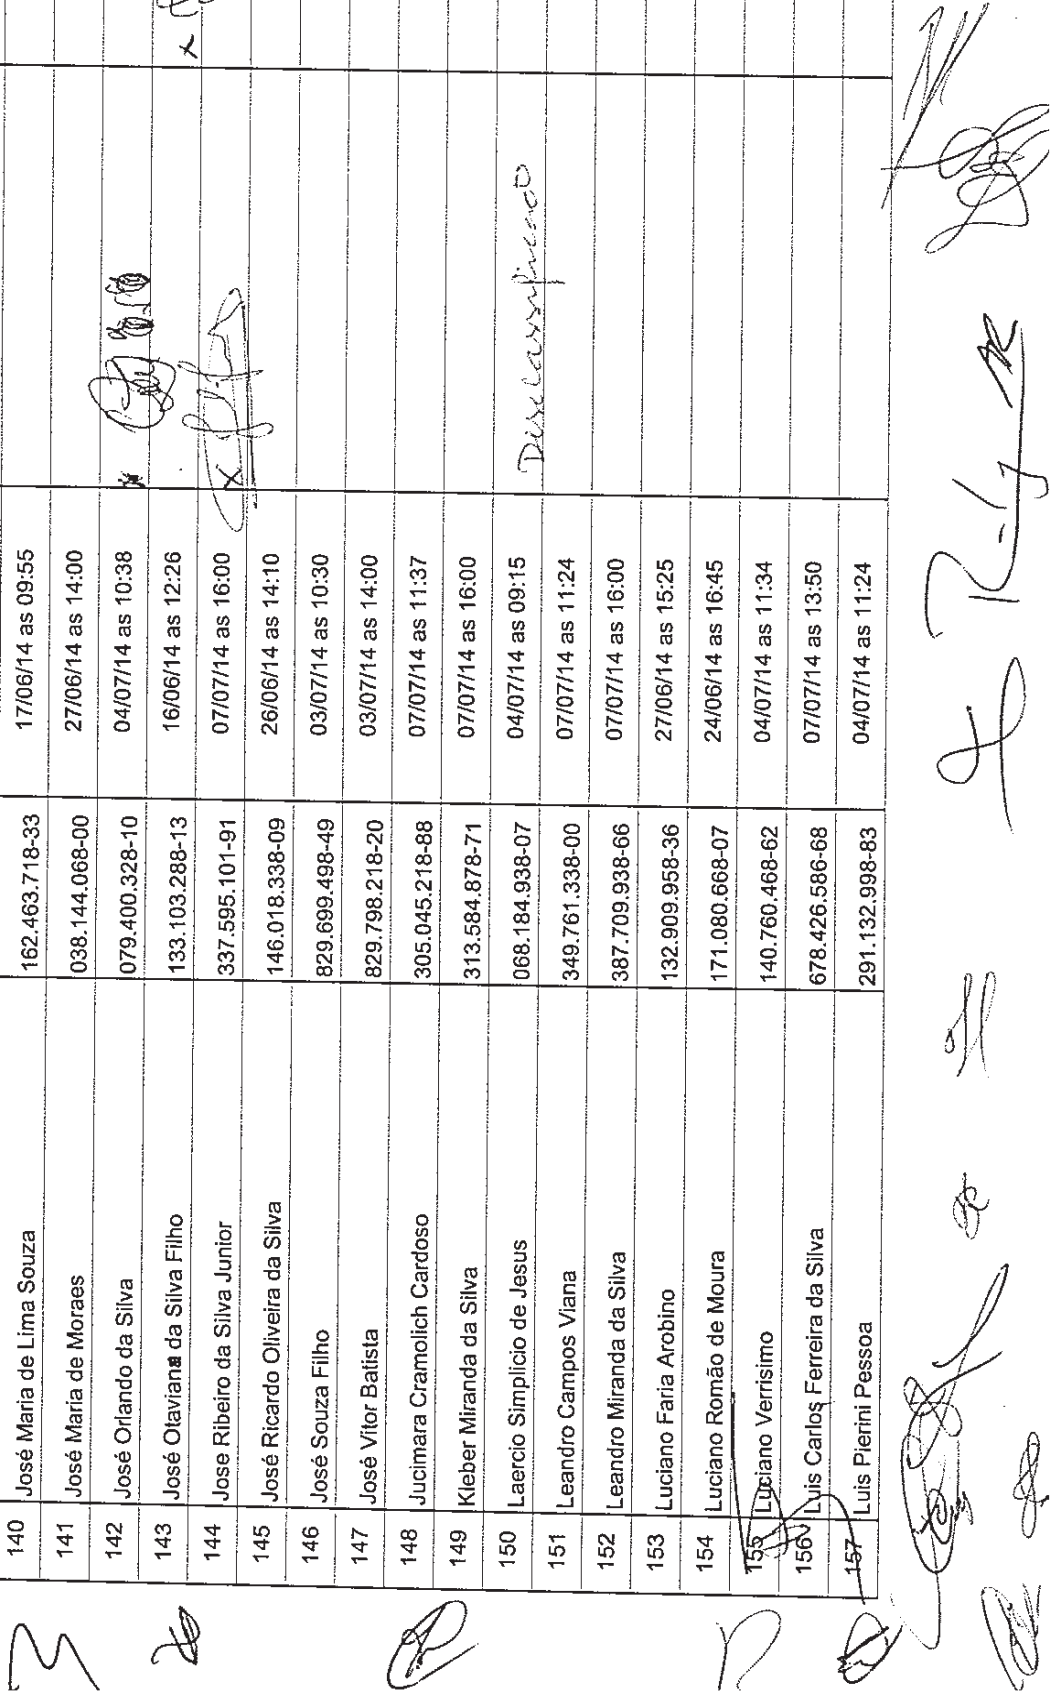 140 José Maria de Lima Souza 162.463.718-33 17/06/14 as 09:55
141 José Maria de Moraes 038.144.068-00 27/06/14 as 14:00
142 José Orlando da Silva 079.400.328-10 04/07/14 as 10:38
143 José Otaviano da Silva Filho 133.103.288-13 16/06/14 as 12:26 x
144 Jose Ribeiro da Silva Junior 337.595.101-91 07/07/14 as 16:00 x
145 José Ricardo Oliveira da Silva 146.018.338-09 26/06/14 as 14:10
146 José Souza Filho 829.699.498-49 03/07/14 as 10:30
147 José Vitor Batista 829.798.218-20 03/07/14 as 14:00
148 Jucimara Cramolich Cardoso 305.045.218-88 07/07/14 as 11:37
149 Kleber Miranda da Silva 313.584.878-71 07/07/14 as 16:00
150 Laercio Simplicio de Jesus 068.184.938-07 04/07/14 as 09:15 Desclassificado
151 Leandro Campos Viana 349.761.338-00 07/07/14 as 11:24
152 Leandro Miranda da Silva 387.709.938-66 07/07/14 as 16:00
153 Luciano Faria Arobino 132.909.958-36 27/06/14 as 15:25
154 Luciano Romão de Moura 171.080.668-07 24/06/14 as 16:45
155 Luciano Verrisimo 140.760.468-62 04/07/14 as 11:34
156 Luis Carlos Ferreira da Silva 678.426.586-68 07/07/14 as 13:50
157 Luis Pierini Pessoa 291.132.998-83 04/07/14 as 11:24